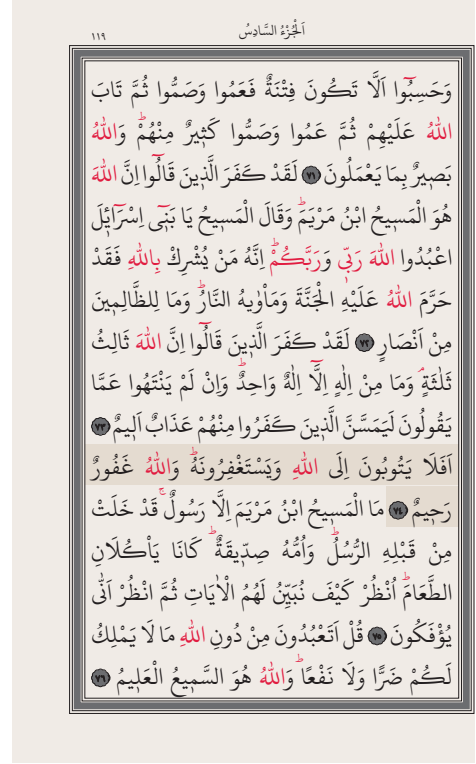 اَلْجُزْءُ السَّادِسُ
١١٩
وَحَسِبُٓوا اَلَّا تَكُونَ فِتْنَةٌ فَعَمُوا وَصَمُّوا ثُمَّ تَابَ
اللّٰهُ عَلَيْهِمْ ثُمَّ عَمُوا وَصَمُّوا كَثٖيرٌ مِنْهُمْؕ وَاللّٰهُ
بَصٖيرٌ بِمَا يَعْمَلُونَ ﴿٧١﴾ لَقَدْ كَفَرَ الَّذٖينَ قَالُٓوا اِنَّ اللّٰهَ
هُوَ الْمَسٖيحُ ابْنُ مَرْيَمَؕ وَقَالَ الْمَسٖيحُ يَا بَنٖٓي اِسْرَٓائٖلَ
اعْبُدُوا اللّٰهَ رَبّٖي وَرَبَّكُمْؕ اِنَّهُ مَنْ يُشْرِكْ بِاللّٰهِ فَقَدْ
حَرَّمَ اللّٰهُ عَلَيْهِ الْجَنَّةَ وَمَأْوٰيهُ النَّارُؕ وَمَا لِلظَّالِمٖينَ
مِنْ اَنْصَارٍ ﴿٧٢﴾ لَقَدْ كَفَرَ الَّذٖينَ قَالُٓوا اِنَّ اللّٰهَ ثَالِثُ
ثَلٰثَةٍۘ وَمَا مِنْ اِلٰهٍ اِلَّٓا اِلٰهٌ وَاحِدٌؕ وَاِنْ لَمْ يَنْتَهُوا عَمَّا
يَقُولُونَ لَيَمَسَّنَّ الَّذٖينَ كَفَرُوا مِنْهُمْ عَذَابٌ اَلٖيمٌ ﴿٧٣﴾
اَفَلَا يَتُوبُونَ اِلَى اللّٰهِ وَيَسْتَغْفِرُونَهُؕ وَاللّٰهُ غَفُورٌ
رَحٖيمٌ ﴿٧٤﴾ مَا الْمَسٖيحُ ابْنُ مَرْيَمَ اِلَّا رَسُولٌۚ قَدْ خَلَتْ
مِنْ قَبْلِهِ الرُّسُلُؕ وَاُمُّهُ صِدّٖيقَةٌؕ كَانَا يَأْكُلَانِ
الطَّعَامَؕ اُنْظُرْ كَيْفَ نُبَيِّنُ لَهُمُ الْاٰيَاتِ ثُمَّ انْظُرْ اَنّٰى
يُؤْفَكُونَ ﴿٧٥﴾ قُلْ اَتَعْبُدُونَ مِنْ دُونِ اللّٰهِ مَا لَا يَمْلِكُ
لَكُمْ ضَرًّا وَلَا نَفْعًاؕ وَاللّٰهُ هُوَ السَّمٖيعُ الْعَلٖيمُ ﴿٧٦﴾